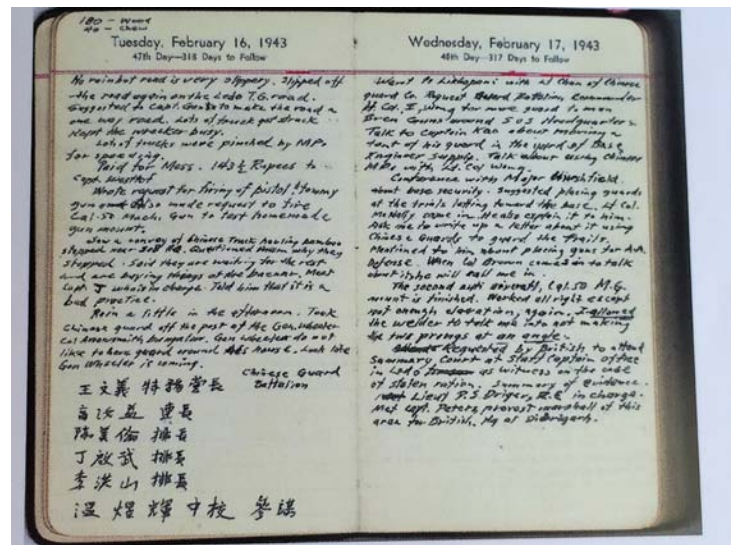 180 - Wood
40 - Chew
Tuesday, February 16, 1943
47th Day—318 Days to Follow
No rain but road is very slippery. Slipped off
the road again on the Ledo T.G. road.
Suggested to Capt. to make the road a
one way road. Lots of truck got struck
Kept the wrecker busy.
Lots of trucks were pinched by MPs
for speeding.
Paid for Mess. 143½ Rupees to
Capt.
Wrote request for firing of pistol & tommy
gun and Also made request to fire
Cal. 50 Mach. Gun to test homemade
gun mount.
Saw a convoy of Chinese Truck hauling bamboo
stopped near SOS HQ. Questioned them why they
stopped. Said they are waiting for the rest
and are buying things at the bazaar. Meet
Capt. J who is in charge. Told him that it is a
bad practice.
Rain a little in the afternoon. Took
Chinese guard off the post of the Gen. Wheeler
Col Arrowsmith bungalow. Gen Wheeler do not
like to have guard around his house. Look like
Gen Wheeler is coming.
Chinese Guard
Battalion
王文義 特務營長
連長
陳美倫 排長
丁啟武 排長
李洪山 排長
溫煜輝 中校 參謀
Wednesday, February 17, 1943
48th Day—317 Days to Follow
Went to with Lt Chan of Chinese
guard Co. Request Battalion Commander
Lt. Col. I, Wing for more guard to man
Bren Guns around SOS Headquarters
Talk to Captain Kao about moving a
tent of his guard in the yard of Base
Engineer Supply. Talk about using Chinese
MPs with Lt. Col Wang.
Conference with Major Hirshfield
about base security. Suggested placing guards
at the trials letting toward the base. Lt Col.
McNally came in. He also explain it to him.
Ask me to write up a letter about it using
Chinese Guards to guard the trails.
Mentioned to him about placing guns for AA
Defense. When Col Brown comes in to talk
about it he will call me in.
The second anti aircraft, Cal. 50 M.G.
mount is finished. Worked all right except
not enough elevation, again. I allowed
the welder to talk me into not making
the two prongs at an angle.
Requested by British to attend
Summary Court at Staff Captain office
in Ledo as witness in the case
of stolen ration. Summary of evidence.
Lieut P.S. Driger, R.E in charge.
Met Capt. Peters, provost marshall of this
area for British, Hq at Dibrugarh.